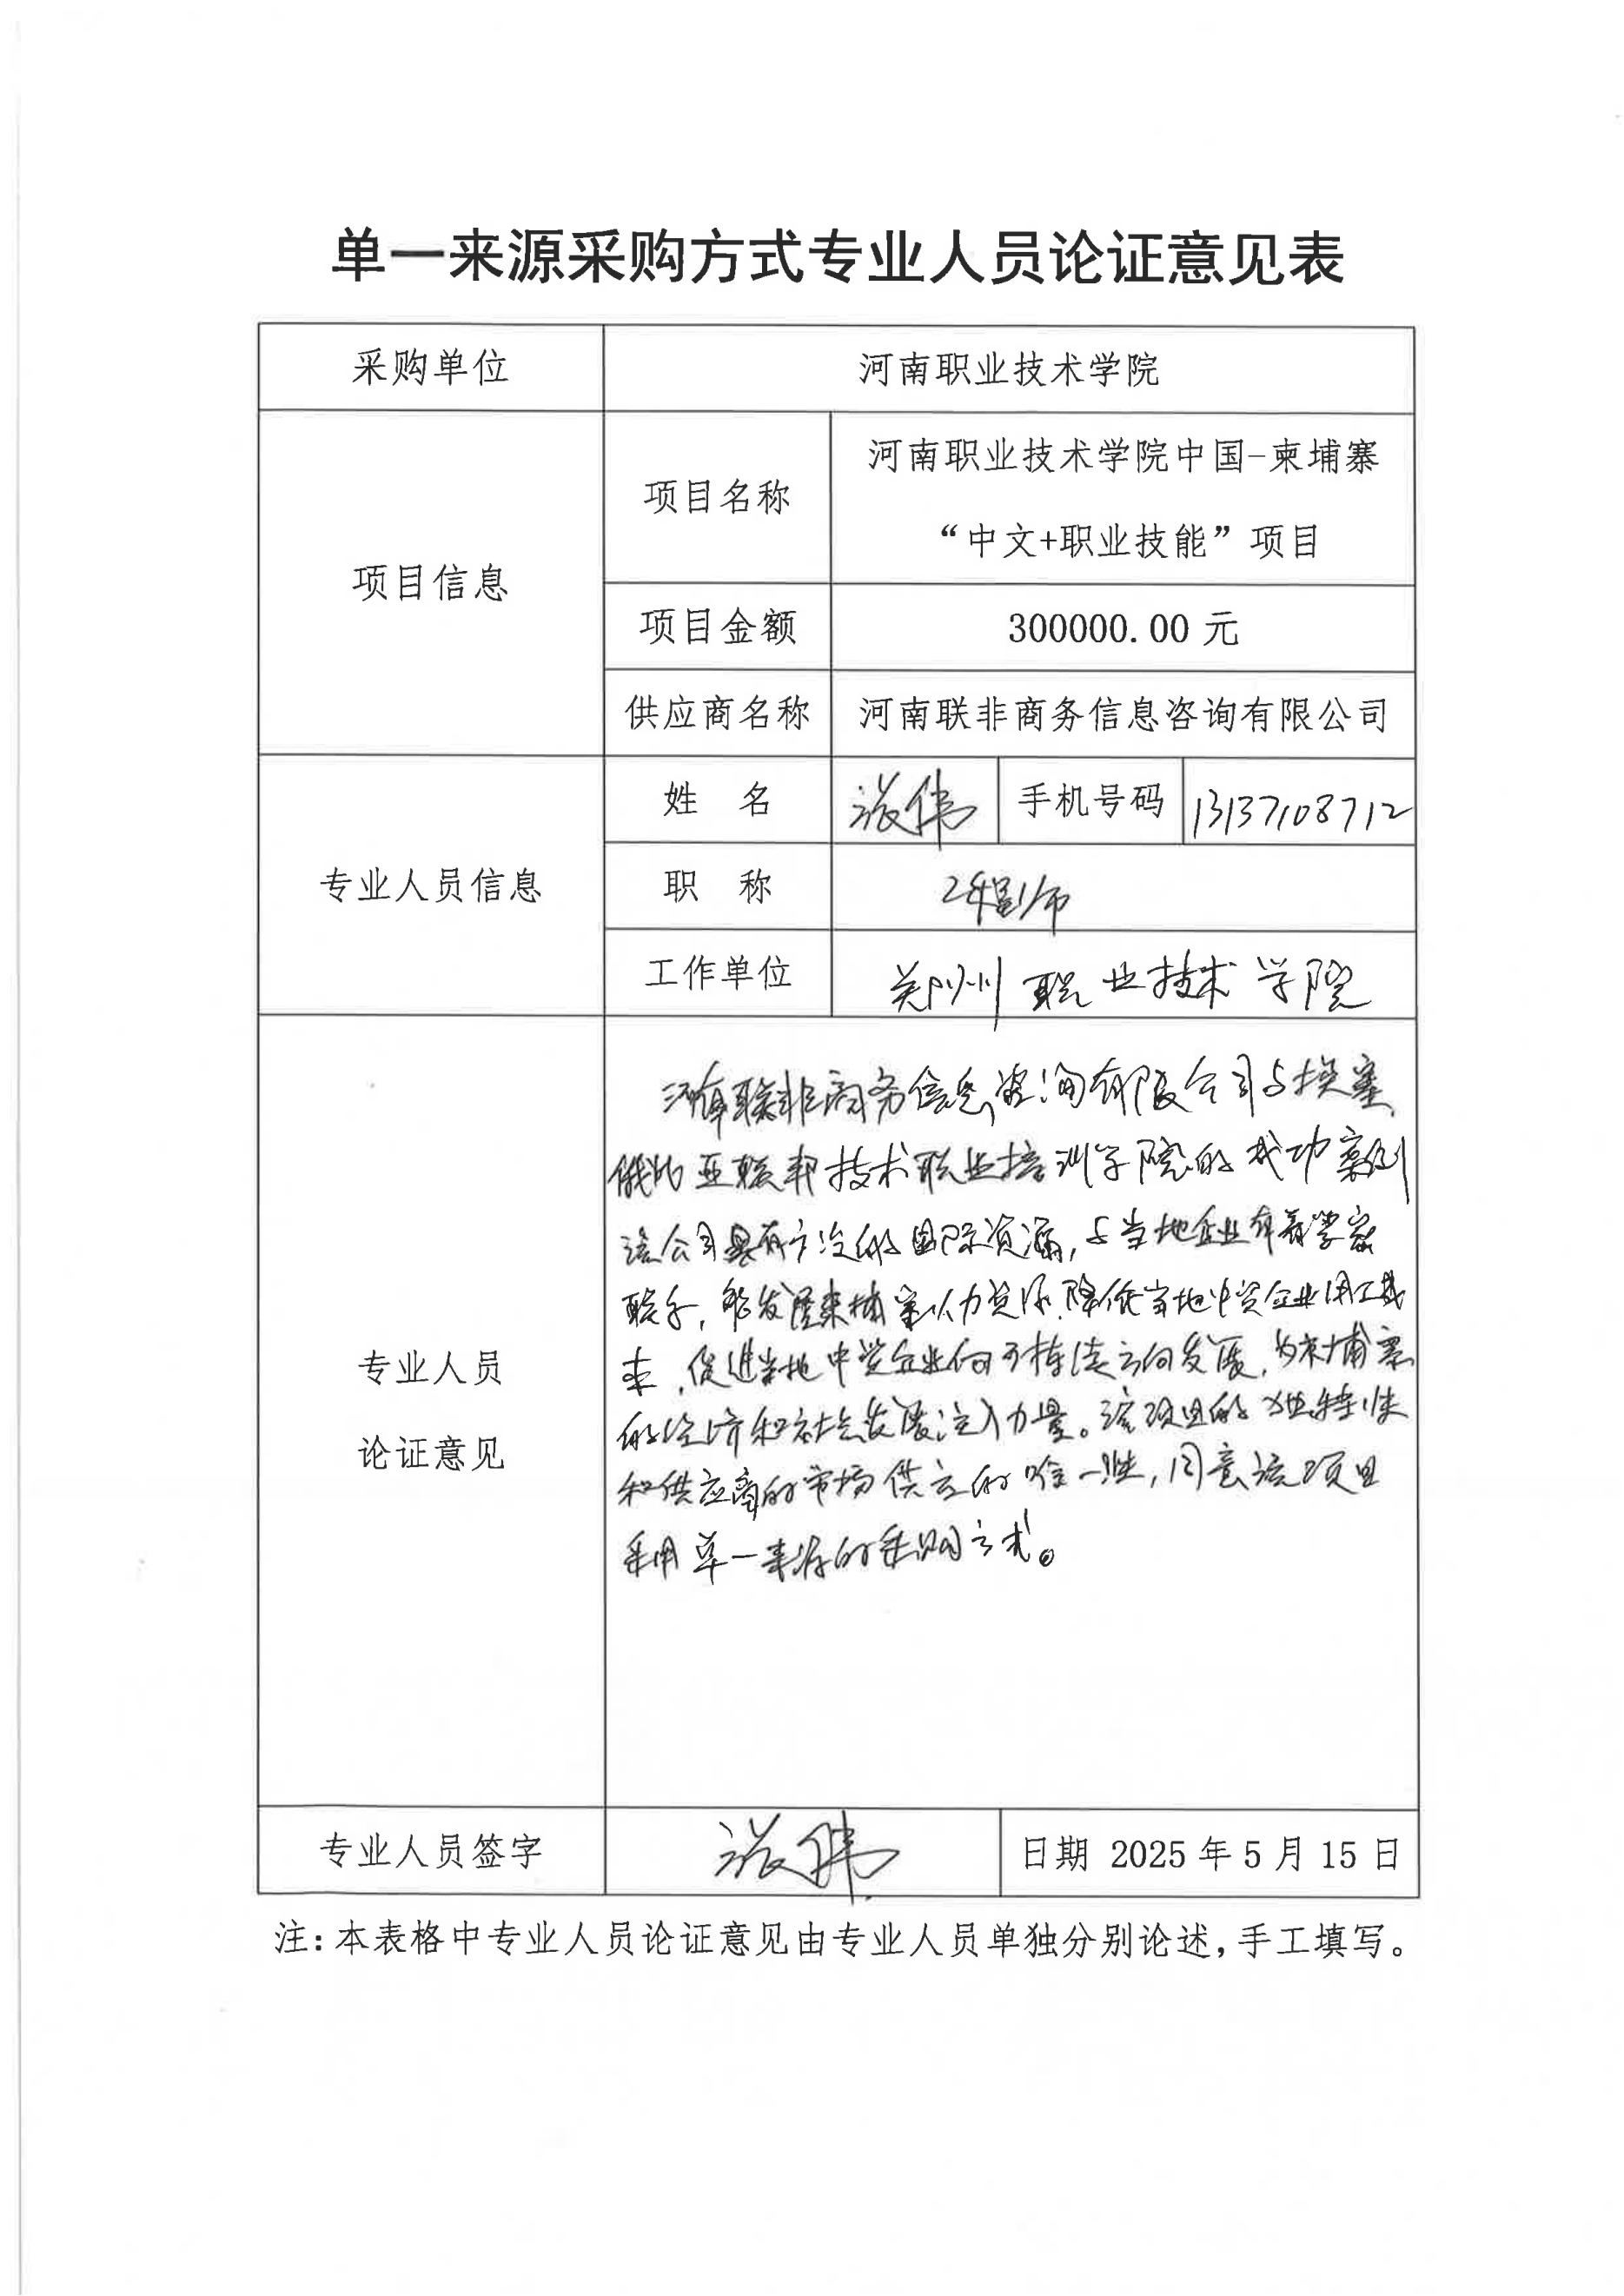 单一来源采购方式专业人员论证意见表
采购单位 河南职业技术学院
项目信息
项目名称 河南职业技术学院中国-柬埔寨
“中文+职业技能”项目
项目金额 300000.00 元
供应商名称 河南联非商务信息咨询有限公司
专业人员信息
姓 名 张伟 手机号码 13137108712
职 称 工程师
工作单位 郑州职业技术学院
专业人员
论证意见
河南联非商务信息咨询有限公司与埃塞
俄比亚联邦技术职业培训学院的成功案例
该公司具有广泛的国际资源,与当地企业有着紧密
联系,能发展柬埔寨人力资源,降低当地中资企业用工成
本,促进当地中资企业向可持续方向发展,为柬埔寨
的经济和社会发展注入力量。该项目的独特性
和供应商的市场供应的唯一性,同意该项目
采用单一来源的采购方式。
专业人员签字 张伟 日期 2025 年 5 月 15 日
注:本表格中专业人员论证意见由专业人员单独分别论述,手工填写。